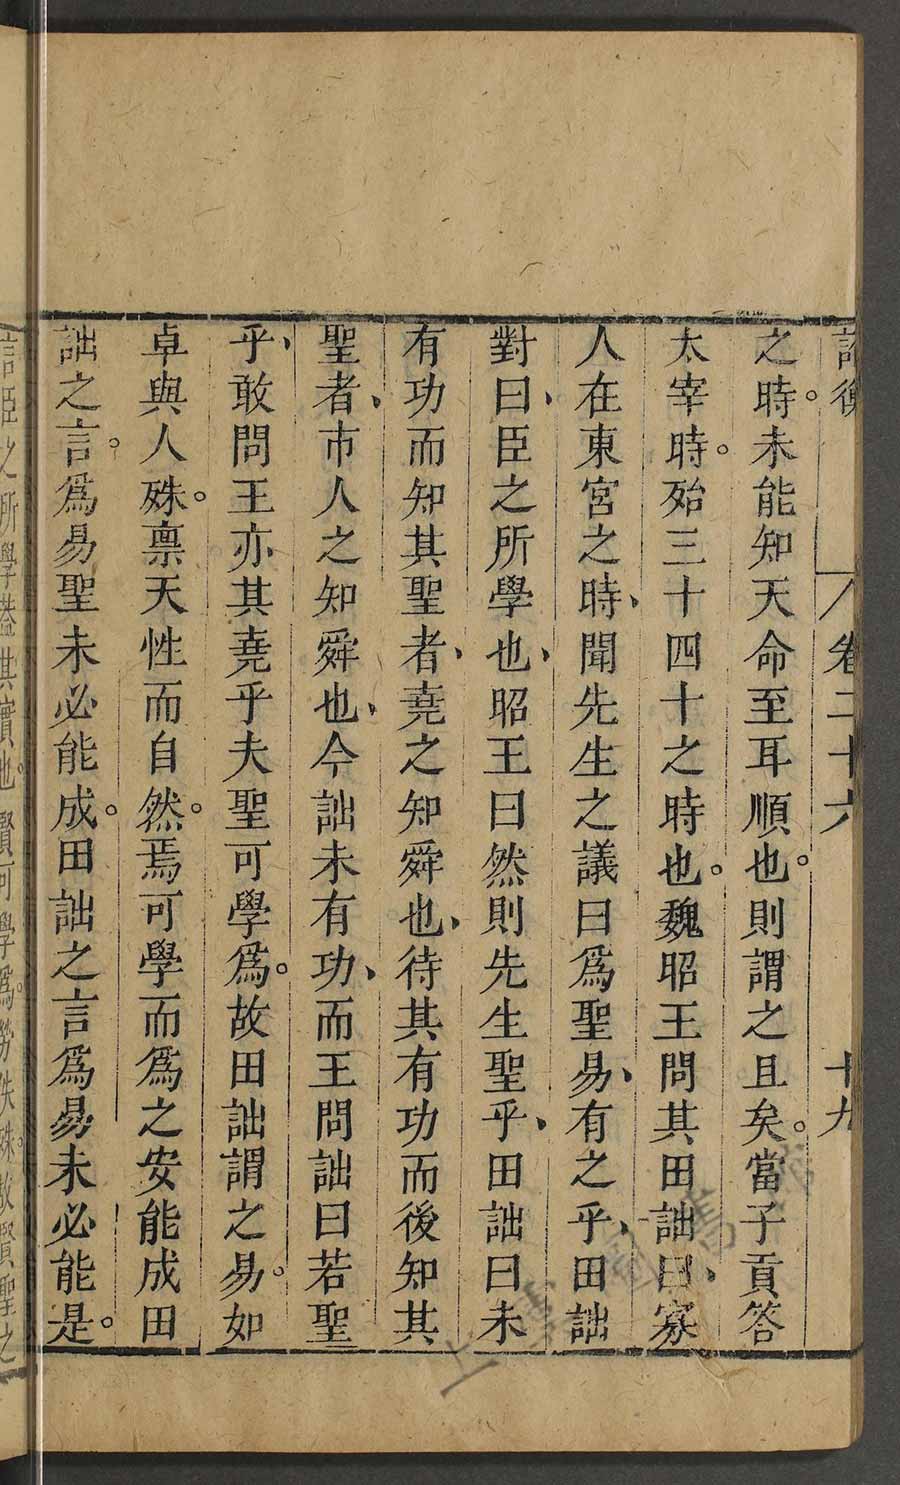 論衡 卷二十六 十九
之時。未能知天命至耳順也。則謂之且矣。當子貢答
太宰時。殆三十四十之時也。魏昭王問其田詘曰、寡
人在東宮之時、聞先生之議曰爲聖易、有之乎、田詘
對曰、臣之所學也、昭王曰然則先生聖乎、田詘曰未
有功而知其聖者、堯之知舜也、待其有功而後知其
聖者、市人之知舜也、今詘未有功、而王問詘曰若聖
乎、敢問王亦其堯乎夫聖可學爲。故田詘謂之易。如
卓與人殊。禀天性而自然。焉可學而爲之安能成田
詘之言。爲易聖未必能成。田詘之言爲易未必能是。
言臣之所學蓋其實也。賢可學爲。勞佚殊。故賢聖之